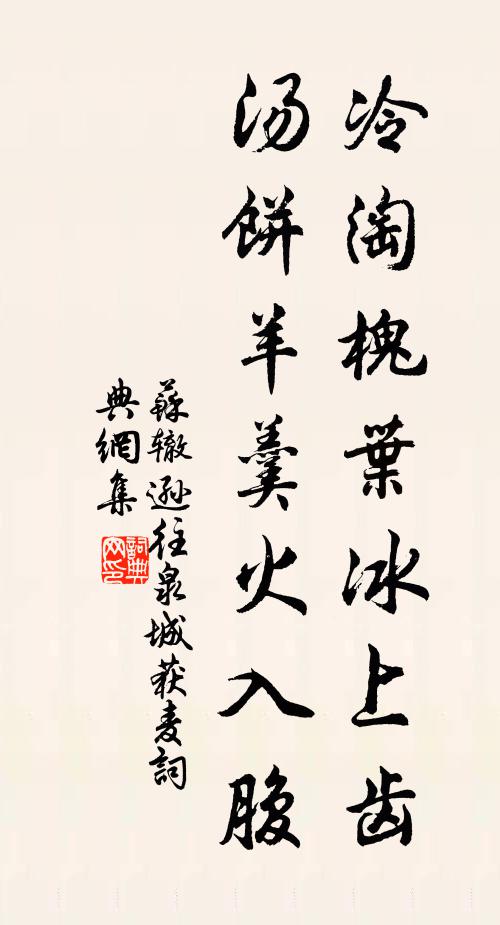 冷淘槐葉冰上齿
汤餅羊羹火入腹
蘇辙逊往泉城获麦詞
典網集
詞典
网印